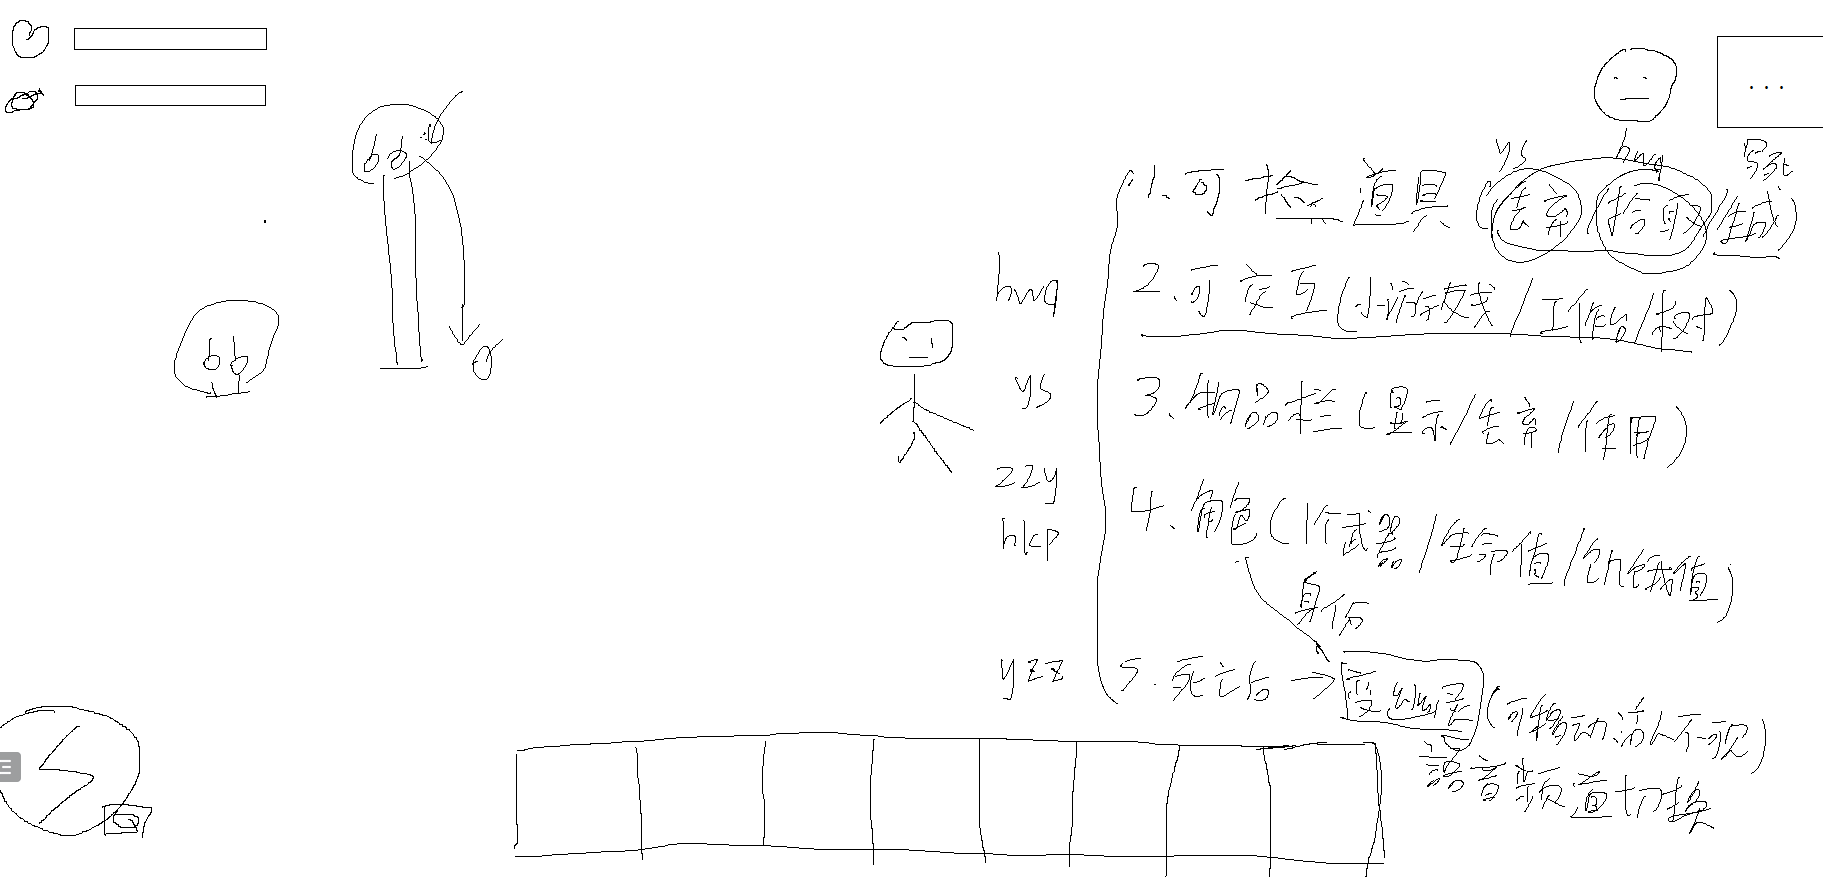 ...
ys hwq 写死
1.可捡道具(丢弃/拾取/生成)
hwq 2.可交互(小游戏/工作台/树)
ys 3.物品栏(显示/丢弃/使用)
zzy 4.角色(1个武器/生命值/饥饿值)
hkp
身份
yzz 5.死亡后→变幽灵(可移动活人不可视)
語音频道切换